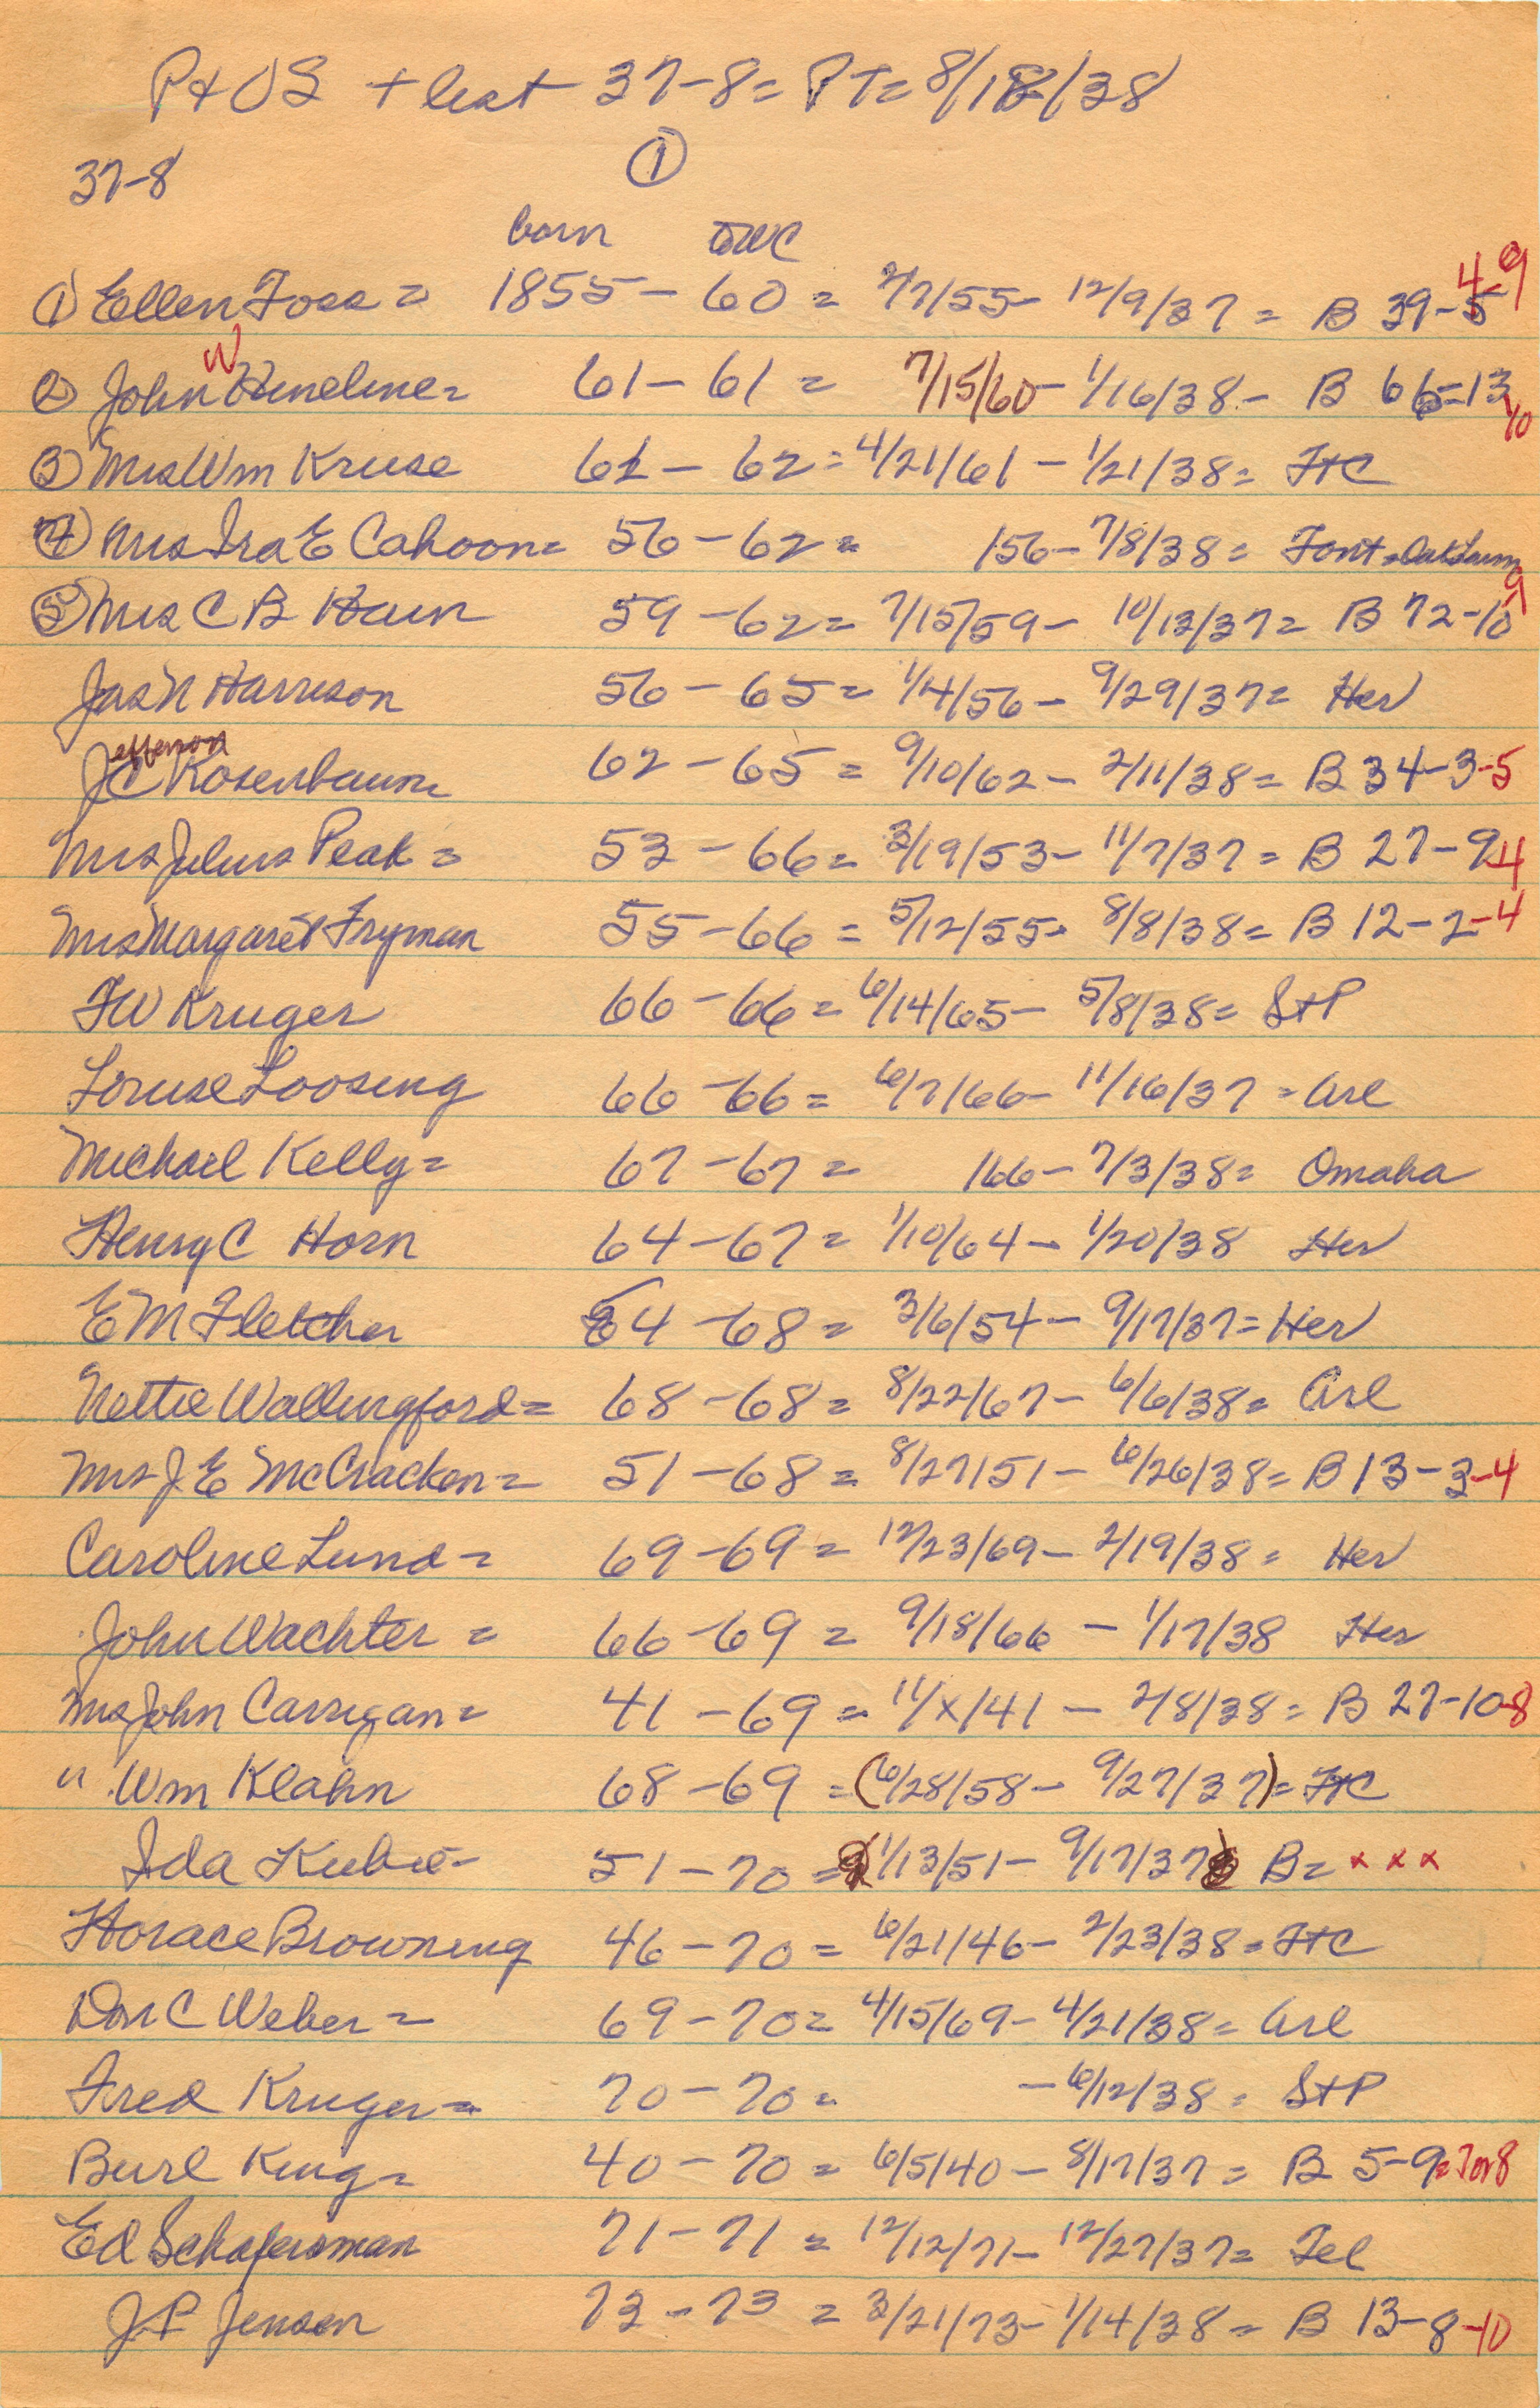 P+OS + list 37-8 = PT= 8/18/38
①
37-8
born DWC
① Ellen Foss = 1855 - 60 = 2/7/55 - 12/9/37 = B 39-5 4-9
② John W Hineline = 61 - 61 = 7/15/60 - 1/16/38 - B 66=13 10
③ Mrs Wm Kruse 61 - 62 = 4/21/61 - 1/21/38 = FtC
④ Mrs Ira E Cahoon = 56 - 62 = /56 - 7/8/38 = Font =
⑤ Mrs C B 59 - 62 = 7/15/59 - 10/13/37 = B 72-10 9
Jas N Harrison 56 - 65 = 1/4/56 - 9/29/37 = Her
Jefferson C Rosenbaum 62 - 65 = 9/10/62 - 2/11/38 = B 34-3-5
Mrs Julius Peak = 53 - 66 = 3/19/53 - 11/7/37 = B 27-9-4
Mrs Margaret Fryman 55 - 66 = 5/12/55 - 8/8/38 = B 12-2-4
FW Kruger 66 - 66 = 6/14/65 - 5/8/38 = StP
Louise Loosing 66 - 66 = 6/7/66 - 11/16/37 = Arl
Michael Kelly = 67 - 67 = /66 - 7/3/38 = Omaha
Henry C Horn 64 - 67 = 1/10/64 - 1/20/38 Her
E M Fletcher 54 - 68 = 3/6/54 - 9/17/37 = Her
Nettie Wallingford = 68 - 68 = 8/22/67 - 6/6/38 = Arl
Mrs J E McCracken = 51 - 68 = 8/27/51 - 6/26/38 = B 13-3-4
Caroline Lund = 69 - 69 = 12/23/69 - 2/19/38 = Her
John Wachter = 66 - 69 = 9/18/66 - 1/17/38 Her
Mrs John Carrigan = 41 - 69 = 11/x/41 - 2/8/38 = B 27-10-8
" Wm Klahn 68 - 69 = (6/28/58 - 9/27/37) = FtC
Ida 51 - 70 = 1/13/51 - 9/17/37 B = x x x
Horace Browning 46 - 70 = 6/21/46 - 2/23/38 = FtC
Don C Weber = 69 - 70 = 4/15/69 - 4/21/38 = Arl
Fred Kruger = 70 - 70 = - 6/12/38 = StP
Burl King = 40 - 70 = 6/5/40 - 8/17/37 = B 5-9 = 7 or 8
Ed Schafersman 71 - 71 = 12/12/71 - 12/27/37 = Tel
J.P Jensen 73 - 73 = 3/21/73 - 1/14/38 = B 13-8-10